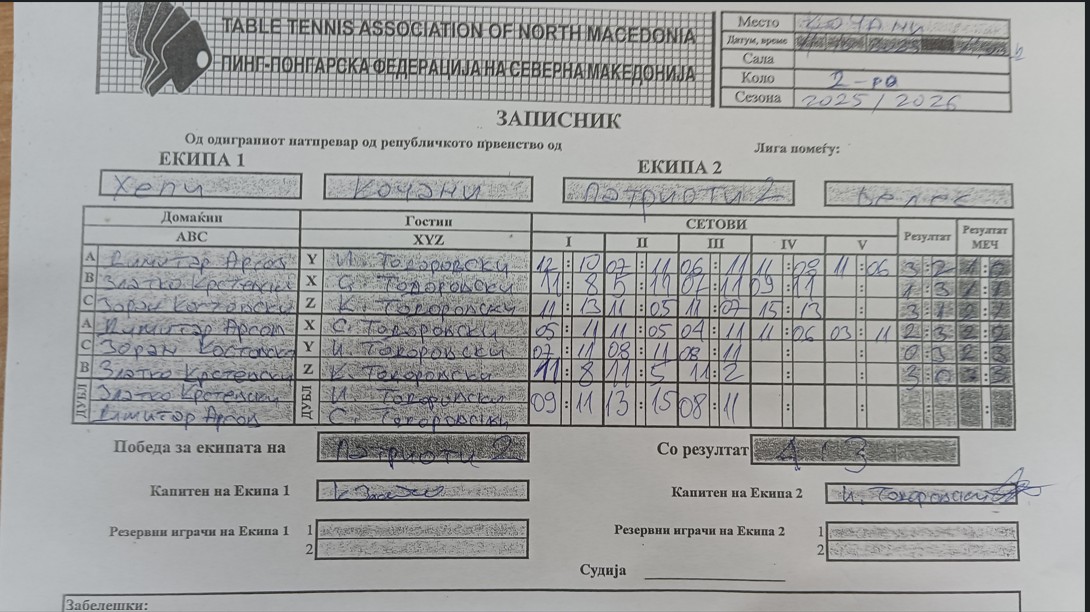 TABLE TENNIS ASSOCIATION OF NORTH MACEDONIA
ПИНГ-ПОНГАРСКА ФЕДЕРАЦИЈА НА СЕВЕРНА МАКЕДОНИЈА
Место КОЧАНИ
Датум, време
Сала
Коло 2-ро
Сезона 2025/2026
ЗАПИСНИК
Од одиграниот натпревар од републичкото првенство од Лига помеѓу:
ЕКИПА 1 ЕКИПА 2
Хепи Кочани Патриоти 2 Велес
Домаќин Гостин СЕТОВИ Резултат Резултат МЕЧ
ABC XYZ I II III IV V
A Димитар Аргов Y И. Тодоровски 12:10 07:11 06:11 11:09 11:06 3:2 1:0
B Златко Крстевски X С. Тодоровски 11:8 5:11 07:11 09:11 1:3 1:1
C Зоран Костовски Z К. Тодоровски 11:13 11:05 11:07 15:13 3:1 2:1
A Димитар Аргов X С. Тодоровски 05:11 11:05 04:11 11:06 03:11 2:3 2:2
C Зоран Костовски Y И. Тодоровски 07:11 08:11 08:11 0:3 2:3
B Златко Крстевски Z К. Тодоровски 11:8 11:5 11:2 3:0 :3
ДУБЛ Златко Крстевски ДУБЛ И. Тодоровски 09:11 13:15 08:11
Димитар Аргов С. Тодоровски
Победа за екипата на Патриоти 2 Со резултат 4:3
Капитен на Екипа 1 Капитен на Екипа 2 И. Тодоровски
Резервни играчи на Екипа 1 1 Резервни играчи на Екипа 2 1
2 2
Судија
Забелешки: